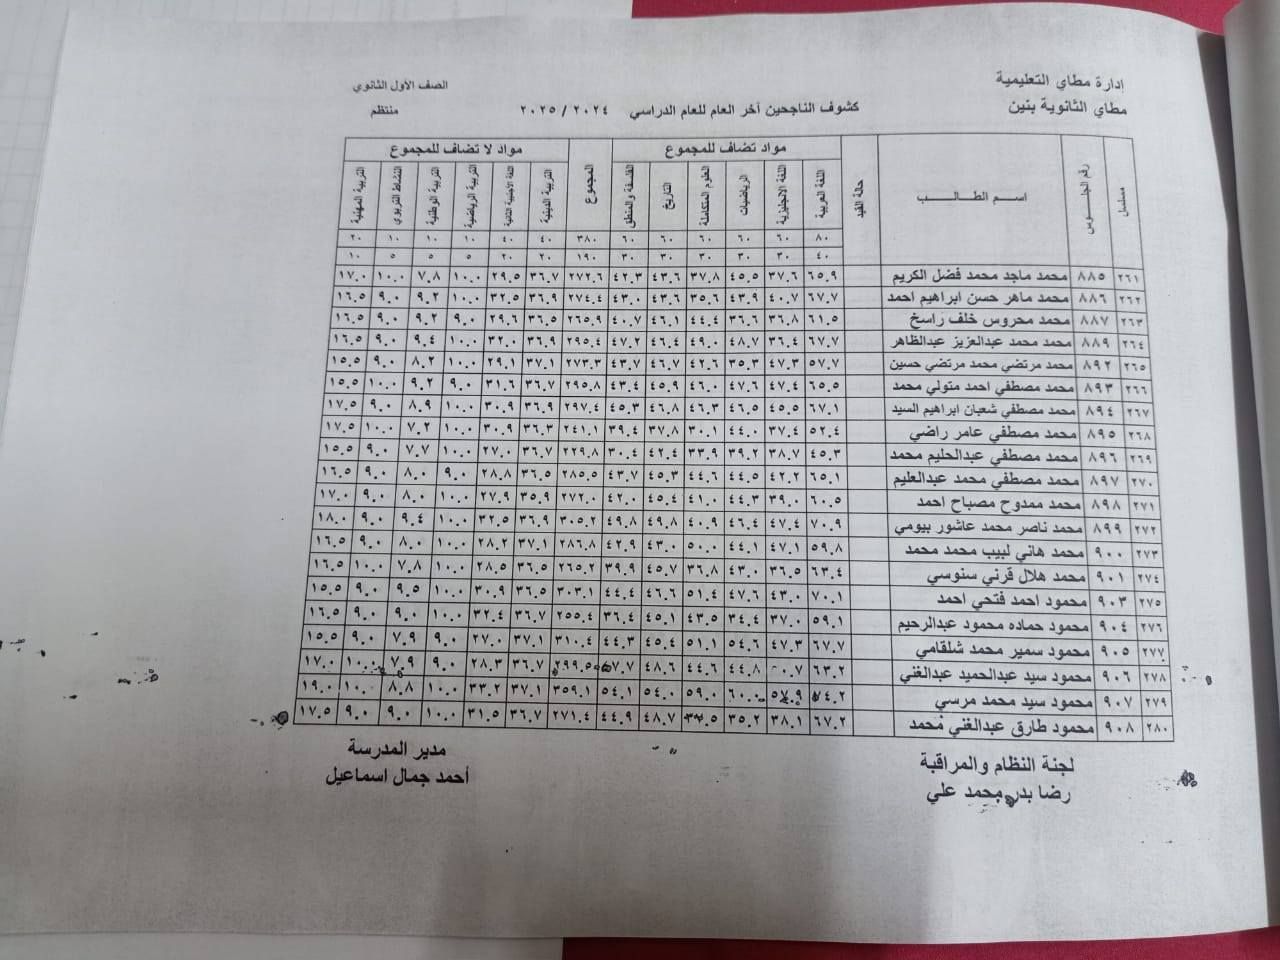 إدارة مطاي التعليمية
الصف الأول الثانوي
مطاي الثانوية بنين
كشوف الناجحين آخر العام للعام الدراسي ٢٠٢٤ / ٢٠٢٥
منتظم
مسلسل رقم الجلوس اسم الطالب حالة القيد مواد تضاف للمجموع المجموع مواد لا تضاف للمجموع
اللغة العربية اللغة الانجليزية الرياضيات العلوم المتكاملة التاريخ الفلسفة والمنطق التربية الدينية اللغة الاجنبية الثانية التربية الرياضية التربية الوطنية النشاط التربوي التربية المهنية
٨٠ ٦٠ ٦٠ ٦٠ ٦٠ ٦٠ ٣٨٠ ٤٠ ٤٠ ١٠ ١٠ ١٠ ٢٠
٤٠ ٣٠ ٣٠ ٣٠ ٣٠ ٣٠ ١٩٠ ٢٠ ٢٠ ٥ ٥ ٥ ١٠
٢٦١ ٨٨٥ محمد ماجد محمد فضل الكريم ٦٥.٩ ٣٧.٦ ٤٥.٥ ٣٧.٨ ٤٣.٦ ٤٢.٣ ٢٧٢.٦ ٣٦.٧ ٢٩.٥ ١٠.٠ ٧.٨ ١٠.٠ ١٧.٠
٢٦٢ ٨٨٦ محمد ماهر حسن ابراهيم احمد ٦٧.٧ ٤٠.٧ ٤٣.٩ ٣٥.٦ ٤٣.٦ ٤٣.٠ ٢٧٤.٤ ٣٦.٩ ٣٢.٥ ١٠.٠ ٩.٢ ٩.٠ ١٦.٥
٢٦٣ ٨٨٧ محمد محروس خلف راسخ ٦١.٥ ٣٦.٨ ٣٦.٦ ٤٤.٤ ٤٦.١ ٤٠.٧ ٢٦٥.٩ ٣٦.٥ ٢٩.٦ ٩.٠ ٩.٢ ٩.٠ ١٦.٥
٢٦٤ ٨٨٩ محمد محمد عبدالعزيز عبدالظاهر ٦٧.٧ ٣٦.٤ ٤٨.٧ ٤٩.٠ ٤٦.٤ ٤٧.٢ ٢٩٥.٤ ٣٦.٩ ٣٢.٠ ١٠.٠ ٩.٤ ٩.٠ ١٦.٥
٢٦٥ ٨٩٢ محمد مرتضي محمد مرتضي حسين ٥٧.٧ ٤٧.٣ ٣٥.٣ ٤٢.٦ ٤٦.٧ ٤٣.٧ ٢٧٣.٣ ٣٧.١ ٢٩.١ ١٠.٠ ٨.٢ ٩.٠ ١٥.٥
٢٦٦ ٨٩٣ محمد مصطفي احمد متولي محمد ٦٥.٥ ٤٧.٤ ٤٧.٦ ٤٦.٠ ٤٥.٩ ٤٣.٤ ٢٩٥.٨ ٣٦.٧ ٣١.٦ ٩.٠ ٩.٢ ١٠.٠ ١٥.٥
٢٦٧ ٨٩٤ محمد مصطفي شعبان ابراهيم السيد ٦٧.١ ٤٥.٥ ٤٦.٥ ٤٦.٣ ٤٦.٨ ٤٥.٣ ٢٩٧.٤ ٣٦.٩ ٣٠.٩ ١٠.٠ ٨.٩ ٩.٠ ١٧.٥
٢٦٨ ٨٩٥ محمد مصطفي عامر راضي ٥٢.٤ ٣٧.٤ ٤٤.٠ ٣٠.١ ٣٧.٨ ٣٩.٤ ٢٤١.١ ٣٦.٣ ٣٠.٩ ١٠.٠ ٧.٢ ١٠.٠ ١٧.٥
٢٦٩ ٨٩٦ محمد مصطفي عبدالحليم محمد ٤٥.٣ ٣٨.٧ ٣٩.٢ ٣٣.٩ ٤٢.٤ ٣٠.٤ ٢٢٩.٨ ٣٦.٧ ٢٧.٠ ١٠.٠ ٧.٧ ٩.٠ ١٥.٥
٢٧٠ ٨٩٧ محمد مصطفي محمد عبدالعليم ٦٥.١ ٤٢.٢ ٤٤.٥ ٤٤.٦ ٤٥.٣ ٤٣.٧ ٢٨٥.٥ ٣٦.٥ ٢٨.٨ ٩.٠ ٨.٠ ٩.٠ ١٦.٥
٢٧١ ٨٩٨ محمد ممدوح مصباح احمد ٦٠.٥ ٣٩.٠ ٤٤.٣ ٤١.٠ ٤٥.٤ ٤٢.٠ ٢٧٢.٠ ٣٥.٩ ٢٧.٩ ١٠.٠ ٨.٠ ٩.٠ ١٧.٠
٢٧٢ ٨٩٩ محمد ناصر محمد عاشور بيومي ٧٠.٩ ٤٧.٤ ٤٦.٤ ٤٠.٩ ٤٩.٨ ٤٩.٨ ٣٠٥.٢ ٣٦.٩ ٣٢.٥ ١٠.٠ ٩.٤ ٩.٠ ١٨.٠
٢٧٣ ٩٠٠ محمد هاني لبيب محمد محمد ٥٩.٨ ٤٧.١ ٤٤.١ ٥٠.٠ ٤٣.٠ ٤٢.٩ ٢٨٦.٨ ٣٧.١ ٢٨.٢ ١٠.٠ ٨.٠ ٩.٠ ١٦.٥
٢٧٤ ٩٠١ محمد هلال قرني سنوسي ٦٣.٤ ٣٦.٥ ٤٣.٠ ٣٦.٨ ٤٥.٧ ٣٩.٩ ٢٦٥.٢ ٣٦.٥ ٢٨.٥ ١٠.٠ ٧.٨ ١٠.٠ ١٦.٥
٢٧٥ ٩٠٣ محمود احمد فتحي احمد ٧٠.١ ٤٣.٠ ٤٧.٦ ٥١.٤ ٤٦.٦ ٤٤.٤ ٣٠٣.١ ٣٦.٥ ٣٠.٩ ١٠.٠ ٩.٥ ٩.٠ ١٥.٥
٢٧٦ ٩٠٤ محمود حماده محمود عبدالرحيم ٥٩.١ ٣٧.٠ ٣٤.٤ ٤٣.٥ ٤٥.١ ٣٦.٤ ٢٥٥.٤ ٣٦.٧ ٣٢.٤ ١٠.٠ ٩.٠ ٩.٠ ١٦.٥
٢٧٧ ٩٠٥ محمود سمير محمد شلقامي ٦٧.٧ ٤٧.٣ ٥٤.٦ ٥١.١ ٤٥.٤ ٤٤.٣ ٣١٠.٤ ٣٧.١ ٢٧.٠ ٩.٠ ٧.٩ ٩.٠ ١٥.٥
٢٧٨ ٩٠٦ محمود سيد عبدالحميد عبدالغني ٦٣.٢ ٤٤.٨ ٤٤.٦ ٤٨.٦ ٢٩٩.٥ ٣٦.٧ ٢٨.٣ ٩.٠ ٧.٩ ١٠.٠ ١٧.٠
٢٧٩ ٩٠٧ محمود سيد محمد مرسي ٧٤.٢ ٥٧.٩ ٦٠.٠ ٥٩.٠ ٥٤.٠ ٥٤.١ ٣٥٩.١ ٣٧.١ ٣٣.٢ ١٠.٠ ٨.٨ ١٠.٠ ١٩.٠
٢٨٠ ٩٠٨ محمود طارق عبدالغني محمد ٦٧.٢ ٣٨.١ ٣٥.٢ ٤٨.٧ ٤٤.٩ ٢٧١.٤ ٣٦.٧ ٣١.٥ ١٠.٠ ٩.٠ ٩.٠ ١٧.٥
لجنة النظام والمراقبة
مدير المدرسة
رضا بدر محمد علي
أحمد جمال اسماعيل